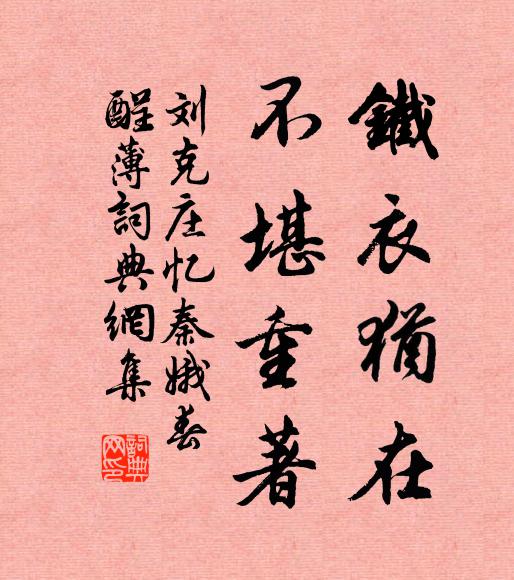 鐵衣猶在
不堪重著
刘克庄忆秦娥春
醒薄詞典網集
詞典网印